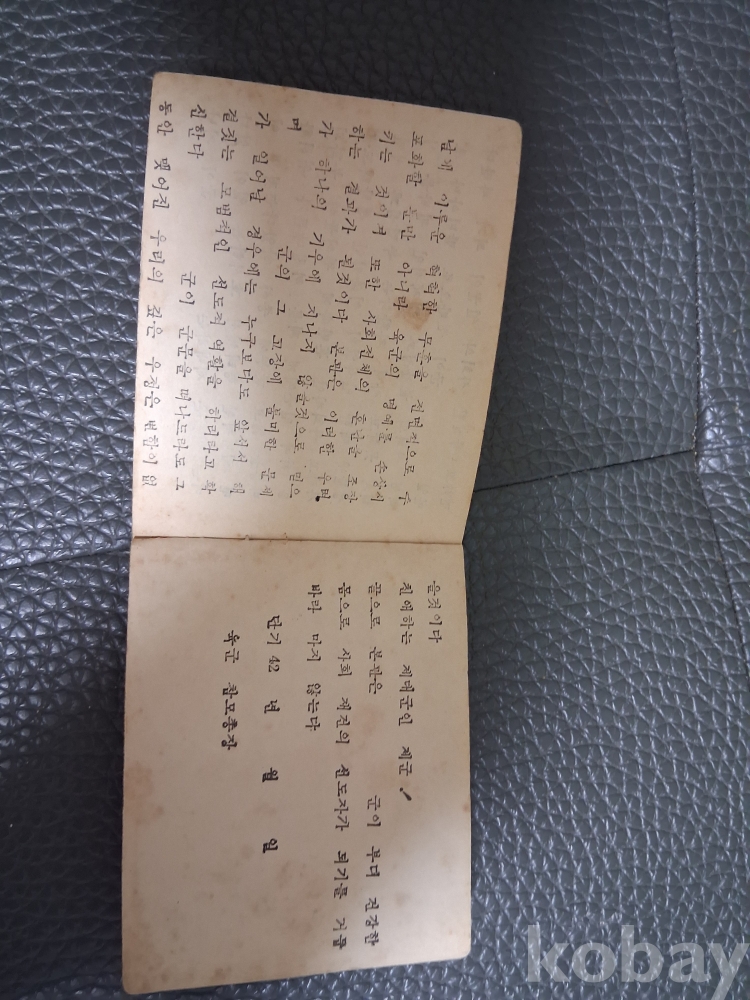 이루은 혁혁한 무훈을 전면적으로 수
포화할 뿐만 아니라 육군의 명예를 손상시
키는 것이며 또한 사회전체의 혼란을 조장
하는 결과가 된것이다 본관은 이러한 우려
가 하나의 기우에 지나지 않을것으로 믿으
며 군의 그 고장에 불미한 문제
가 일어날 경우에는 누구보다도 앞서서 해
결짓는 모범적인 선도적 역활을 하리라고 확
신한다 군이 군문을 떠나드라도 그
동안 맺어진 우리의 깊은 우정은 변함이 없
을것이다
친애하는 제대군인 제군!
끝으로 본관은 군이 부디 건강한
몸으로 사회 재건의 선도자가 되기를 거듭
바라 마지 않는다
단기 42 년 월 일
육군 참모총장
kobay